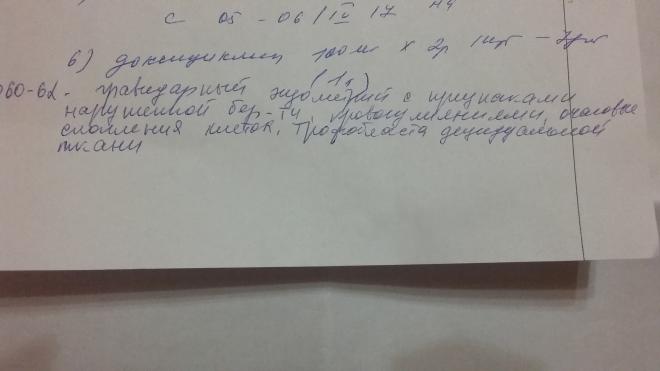 с 05-06/IV 17
6) доксициклин 100мг х 2р
(1т)
060-62. гравидарный эндометрий с признаками
нарушенной бер-ти, кровоизлияниями, очаговые
скопления клеток, трофобласта децидуальной
ткани